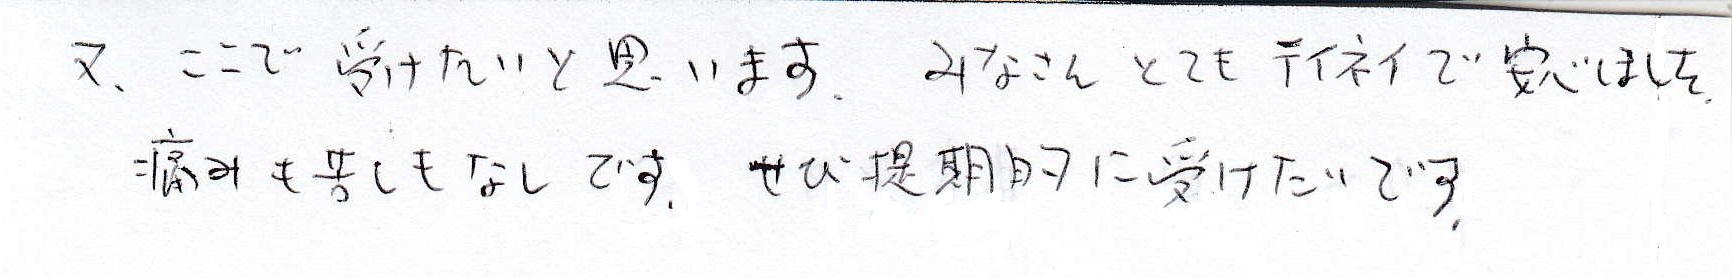 又、ここで受けたいと思います。みなさんとてもテイネイで安心しました。
痛みも苦しもなしです。ぜひ提期的に受けたいです。